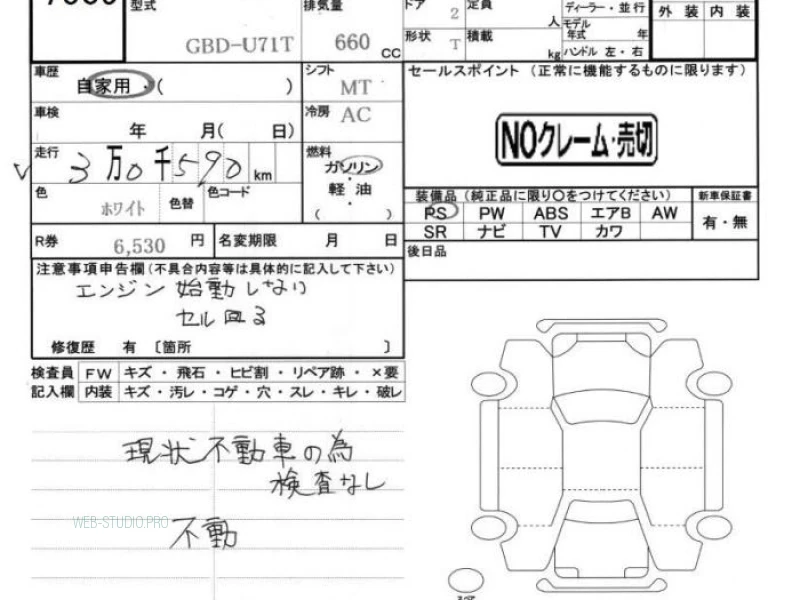 型式
GBD-U71T
排気量
660 CC
ドア
2
定員
人
ディーラー・並行
モデル
年式 年
ハンドル 左・右
形状
T
積載
kg
外装 内装
車歴
自家用・( )
シフト
MT
セールスポイント (正常に機能するものに限ります)
車検
年 月( 日)
冷房
AC
NOクレーム・売切
走行
3万0千590 km
燃料
ガソリン
・
軽油
・
( )
色
ホワイト
色替
色コード
装備品 (純正品に限り〇をつけてください)
新車保証書
PS PW ABS エアB AW
SR ナビ TV カワ
有・無
R券
6,530 円
名変期限 月 日
後日品
注意事項申告欄(不具合内容等は具体的に記入して下さい)
エンジン 始動しない
セル回る
修復歴 有 〔箇所 〕
検査員
記入欄
FW キズ ・ 飛石 ・ ヒビ割 ・ リペア跡 ・ ×要
内装 キズ・汚レ・コゲ・穴・スレ・キレ・破レ
現状不動車の為
検査なし
WEB-STUDIO.PRO
不動